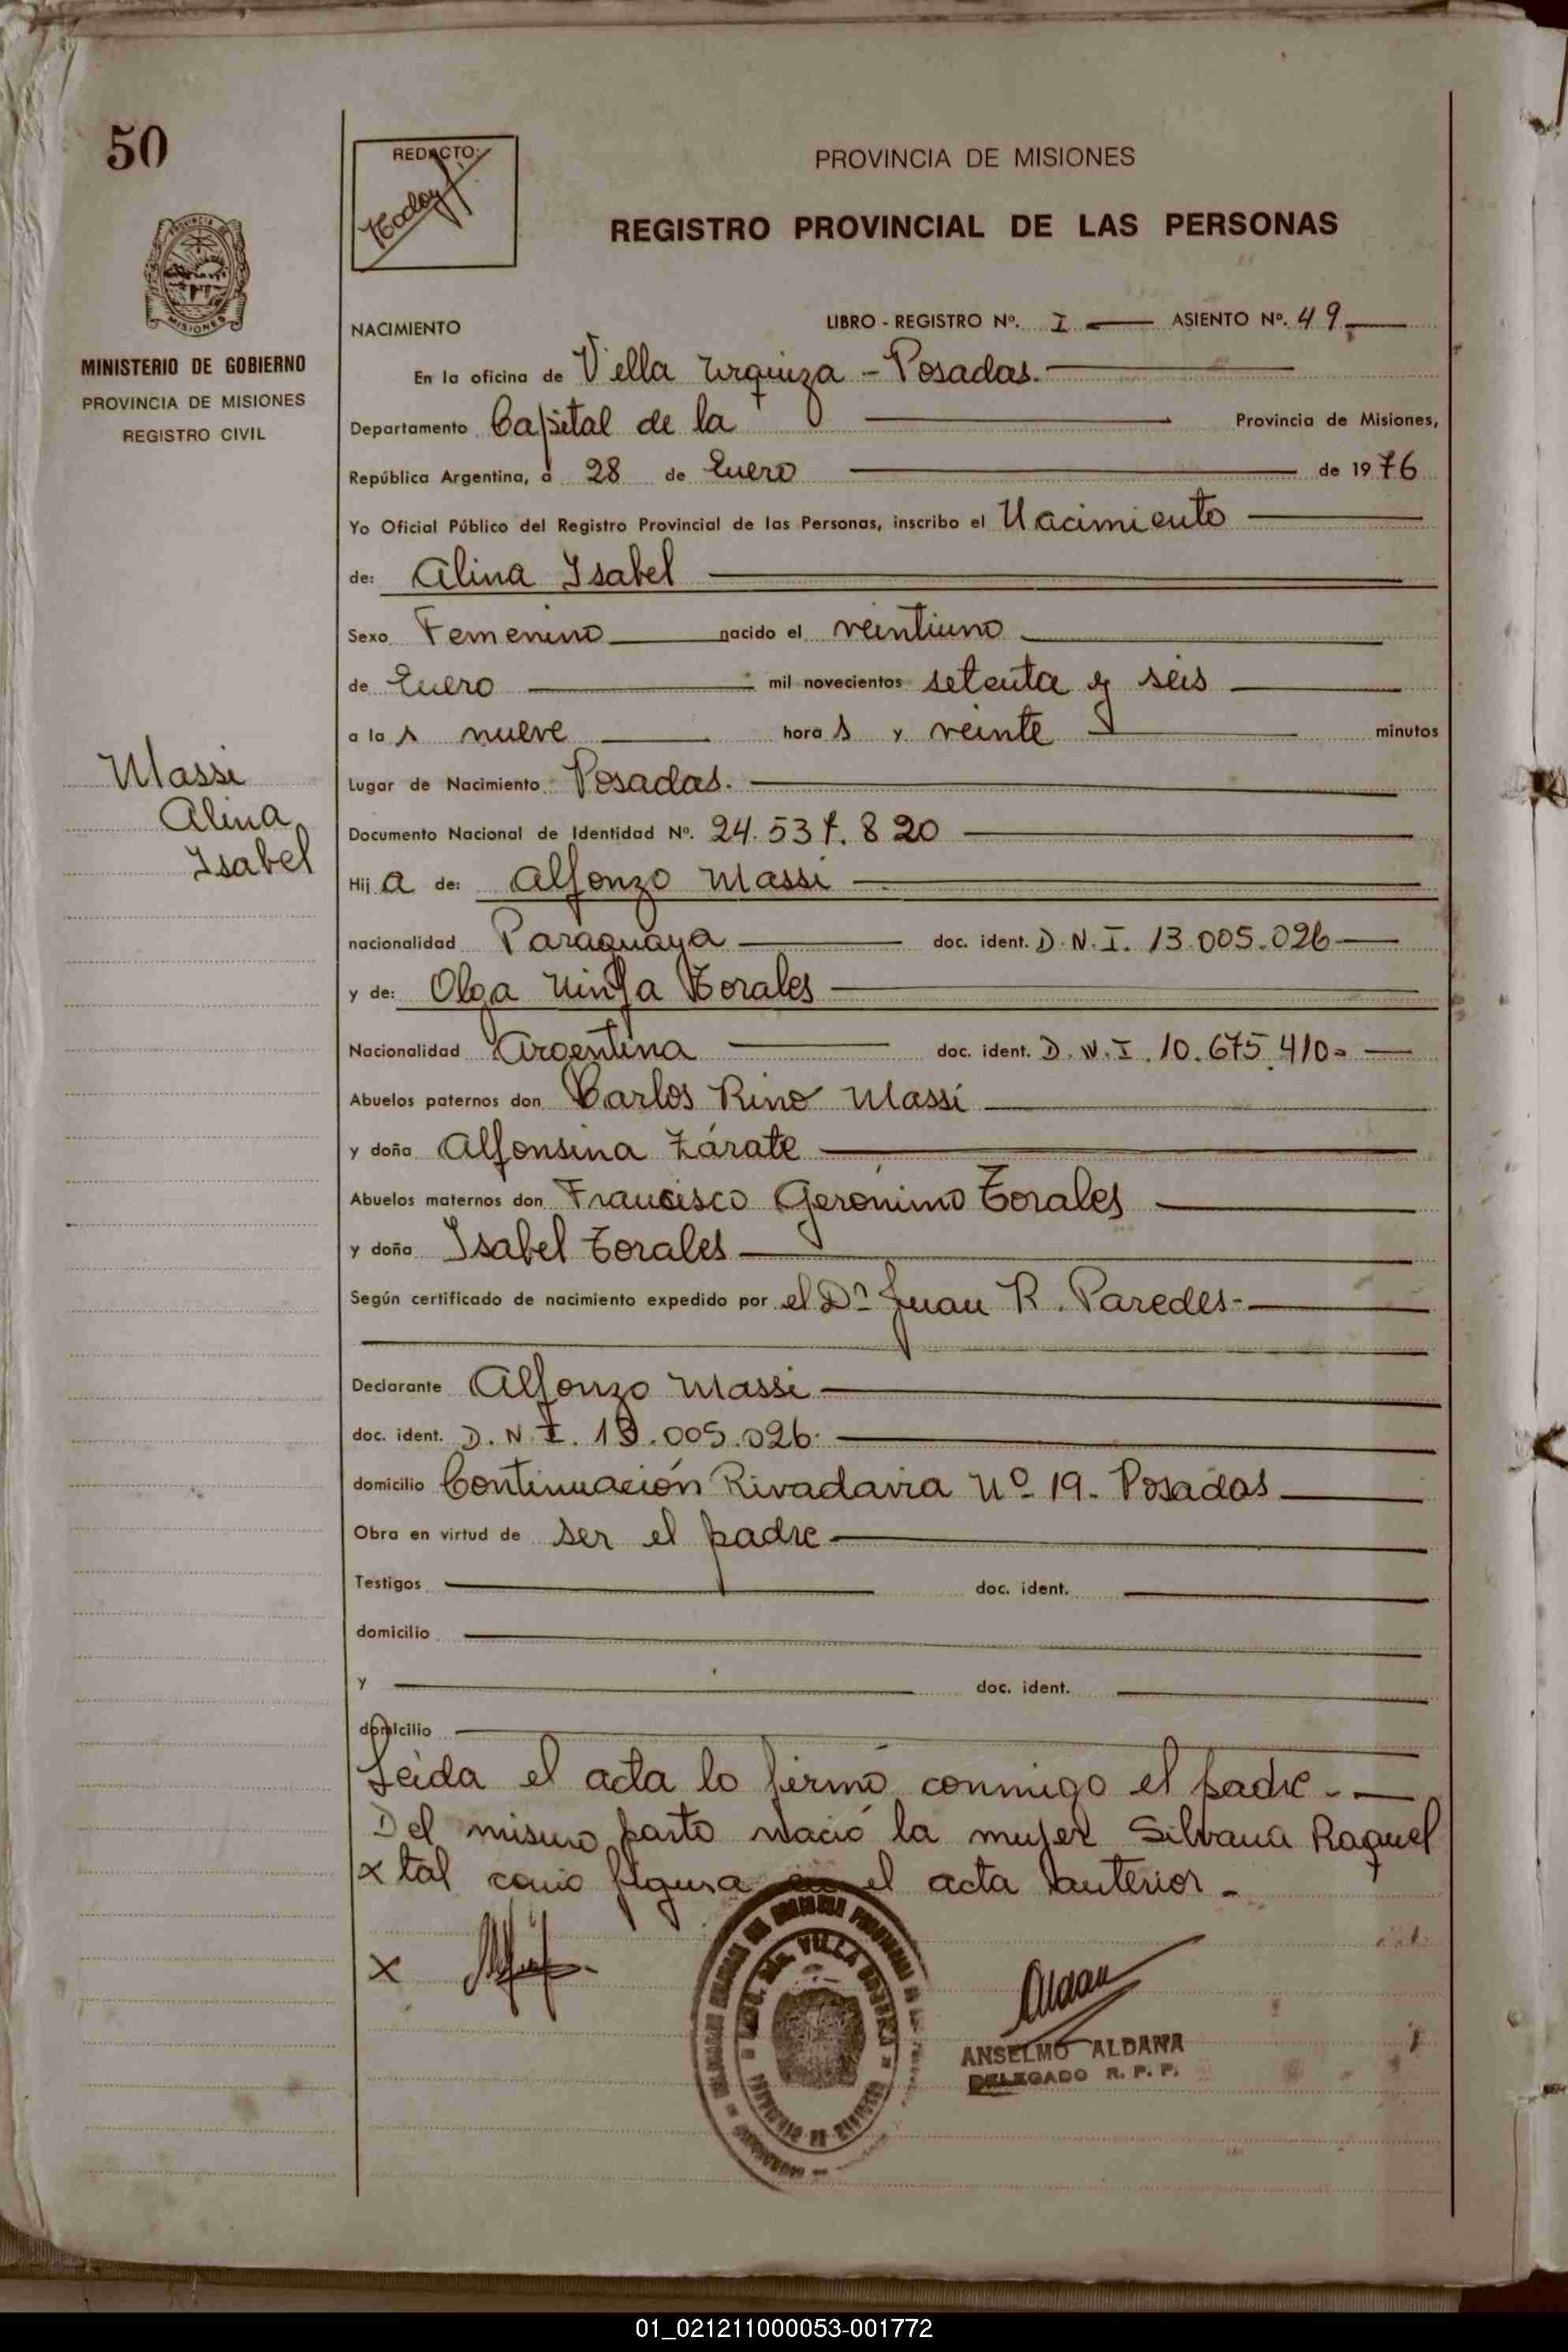 50
REDACTO:
PROVINCIA DE MISIONES
REGISTRO PROVINCIAL DE LAS PERSONAS
MISIONES
MINISTERIO DE GOBIERNO
PROVINCIA DE MISIONES
REGISTRO CIVIL
NACIMIENTO LIBRO - REGISTRO Nº. I ASIENTO Nº. 49
En la oficina de Villa Urquiza - Posadas.
Departamento Capital de la Provincia de Misiones,
República Argentina, a 28 de Enero de 1976
Yo Oficial Público del Registro Provincial de las Personas, inscribo el Nacimiento
de: Alina Isabel
Sexo Femenino nacido el veintiuno
de Enero mil novecientos setenta y seis
a la s nueve hora s y veinte minutos
Massi
Alina
Isabel
Lugar de Nacimiento Posadas.
Documento Nacional de Identidad Nº. 24.537.820
Hij a de: Alfonzo Massi
nacionalidad Paraguaya doc. ident. D.N.I. 13.005.026
y de: Olga Ninfa Torales
Nacionalidad Argentina doc. ident. D.N.I. 10.675.410-
Abuelos paternos don Carlos Rino Massi
y doña Alfonsina Zárate
Abuelos maternos don Francisco Gerónimo Torales
y doña Isabel Torales
Según certificado de nacimiento expedido por el Dr Juan R. Paredes-
Declarante Alfonzo Massi
doc. ident. D.N.I. 13.005.026.
domicilio Continuación Rivadavia Nº 19- Posadas
Obra en virtud de ser el padre
Testigos doc. ident.
domicilio
y doc. ident.
domicilio
Leída el acta lo firmó conmigo el padre.-
Del mismo parto nació la mujer Silvana Raquel
x tal como figura en el acta anterior-
x
VILLA
PROVINCIA DE MISIONES
Aldana
ANSELMO ALDANA
DELEGADO R. P. P.
01_021211000053-001772